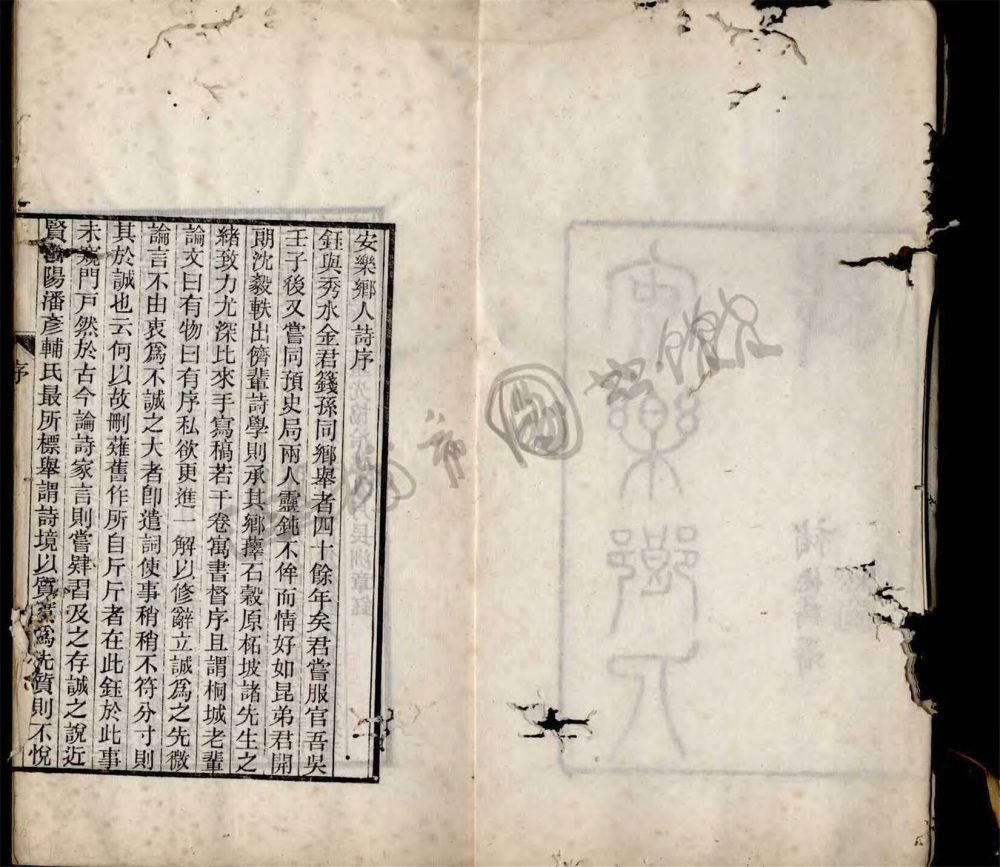 安樂鄉人詩序
鈺與秀水金君籛孫同鄉舉者四十餘年矣君嘗服官吾吳
壬子後又嘗同預史局兩人靈鈍不侔而情好如昆弟君開
朗沈毅軼出儕輩詩學則承其鄉蘀石榖原柘坡諸先生之
緒致力尤深比來手寫稿若干卷寓書督序且謂桐城老輩
論文曰有物曰有序私欲更進一解以修辭立誠爲之先微
論言不由衷爲不誠之大者卽遣詞使事稍稍不符分寸則
其於誠也云何以故刪薙舊作所自斤斤者在此鈺於此事
未窺門戸然於古今論詩家言則嘗肄習及之存誠之說近
賢陽潘彥輔氏最所標舉謂詩境以質實爲先質則不悅
序
安樂鄉人